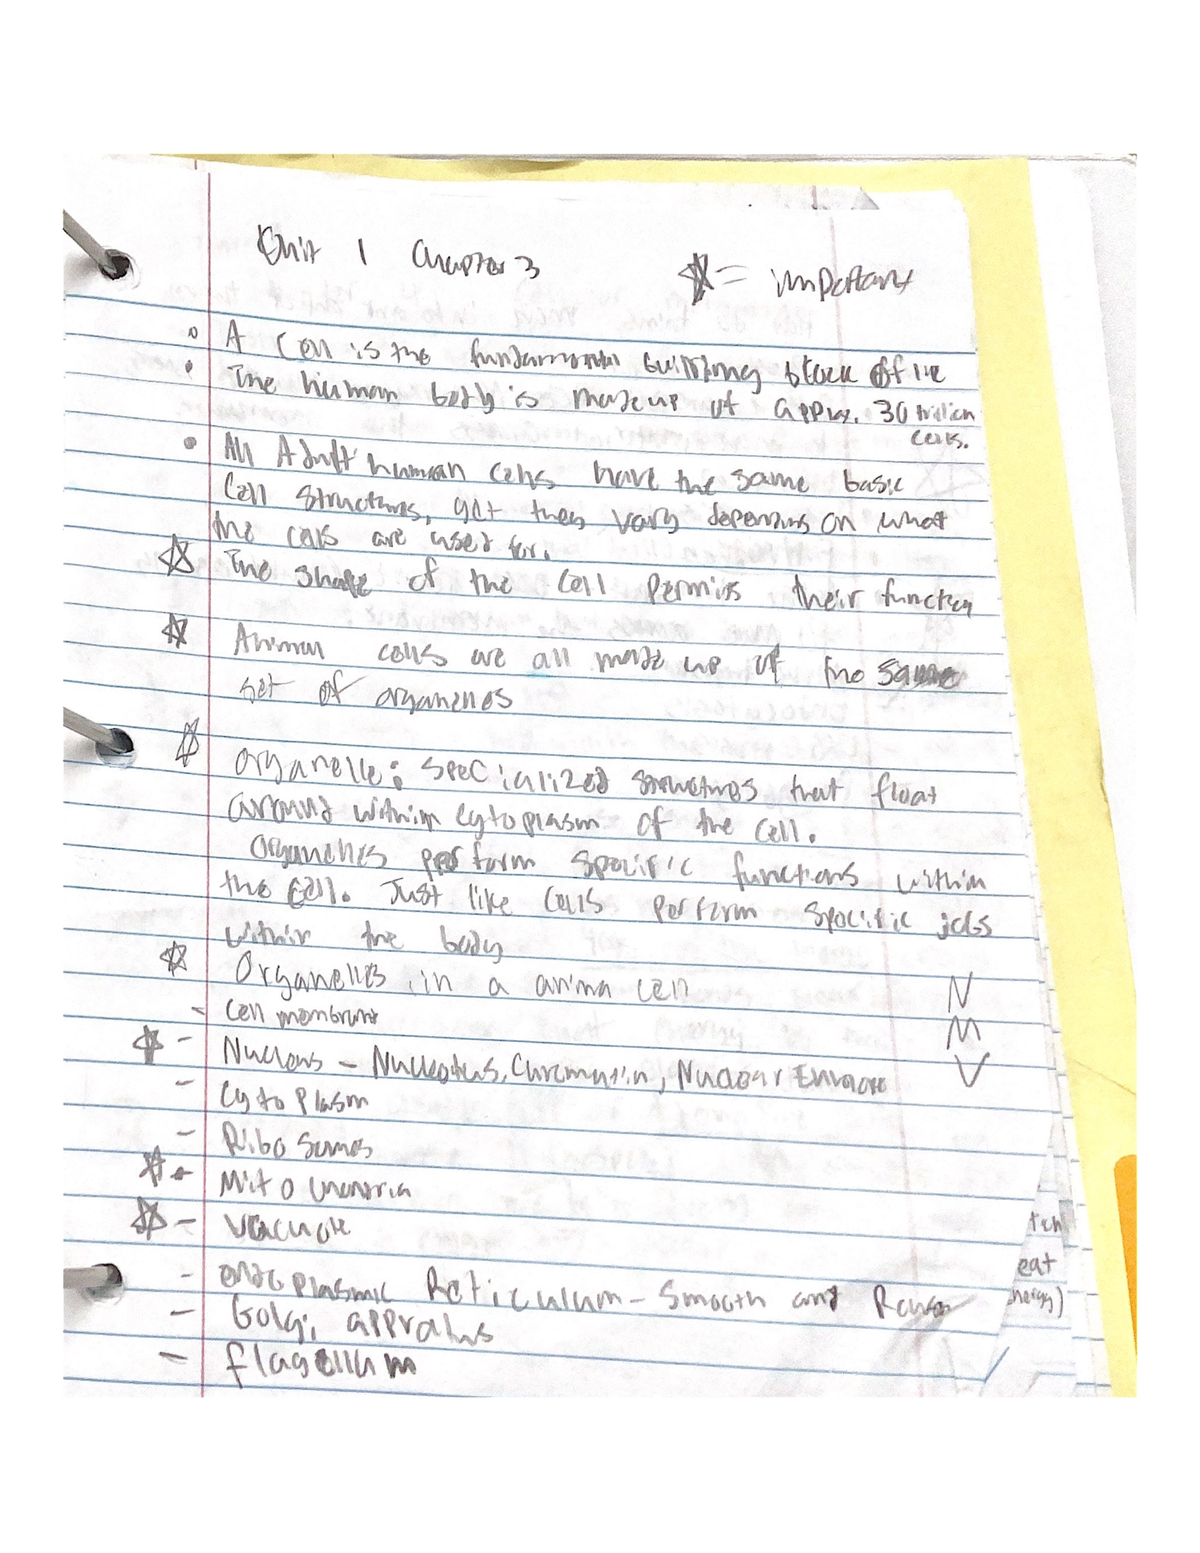 Unit 1 Chapter 3
☆ = important
A Cell is the fundamental building block of life
The human body is made up of approx. 30 trillion
cells.
All Adult human cells have the same basic
Cell structures, yet they vary depending on what
the cells are used for.
☆ The shape of the cell permits their function
☆ Animal cells are all made up of the same
set of organelles
☆ organelle: specialized structures that float
around within cytoplasm of the cell.
Organelles perform specific functions within
the cell. Just like cells perform specific jobs
within the body
☆ Organelles in a anima cell N
- Cell membrane M
☆ - Nucleus - Nucleolus, Chromatin, Nuclear Envelope V
- Cytoplasm
- Ribosomes
☆ - Mitochondria
☆ - Vacuole
- endoplasmic Reticulum - Smooth and Rough
- Golgi appratus
- flagellum
eat